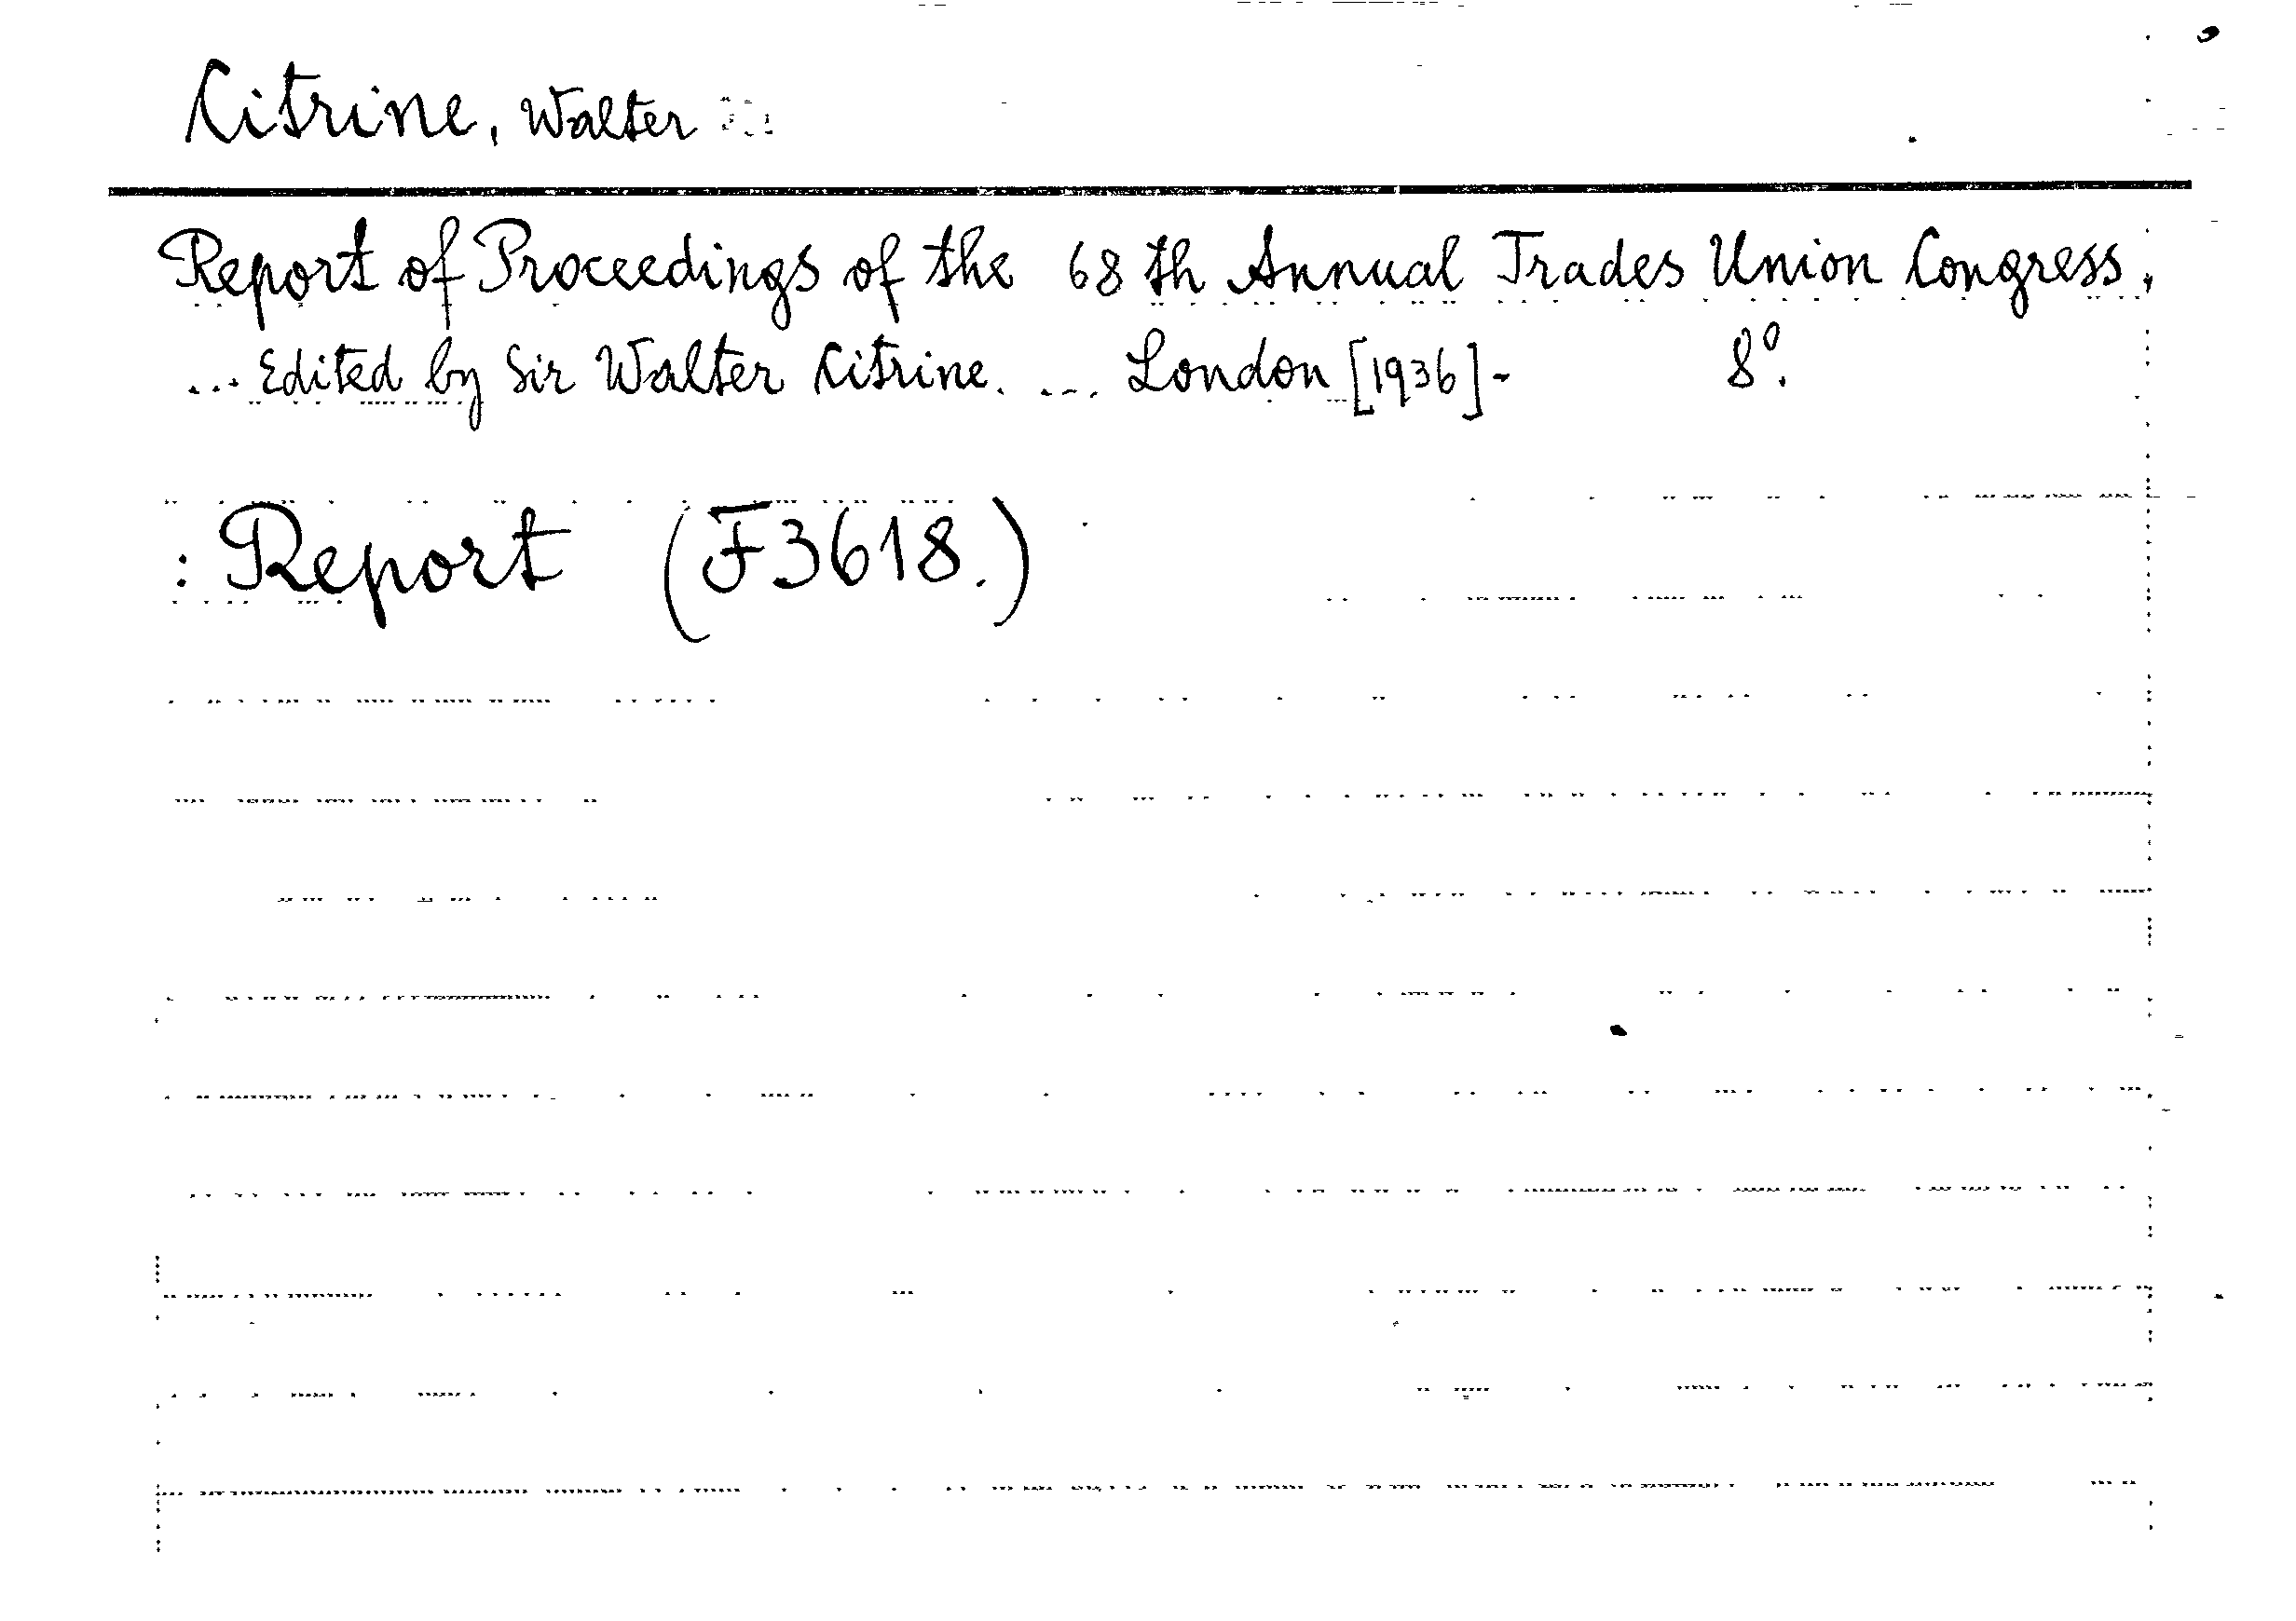 Citrine, Walter
Report of Proceedings of the 68th Annual Trades Union Congress,
... Edited by Sir Walter Citrine. ... London [1936]- 8º.
: Report (F3618.)